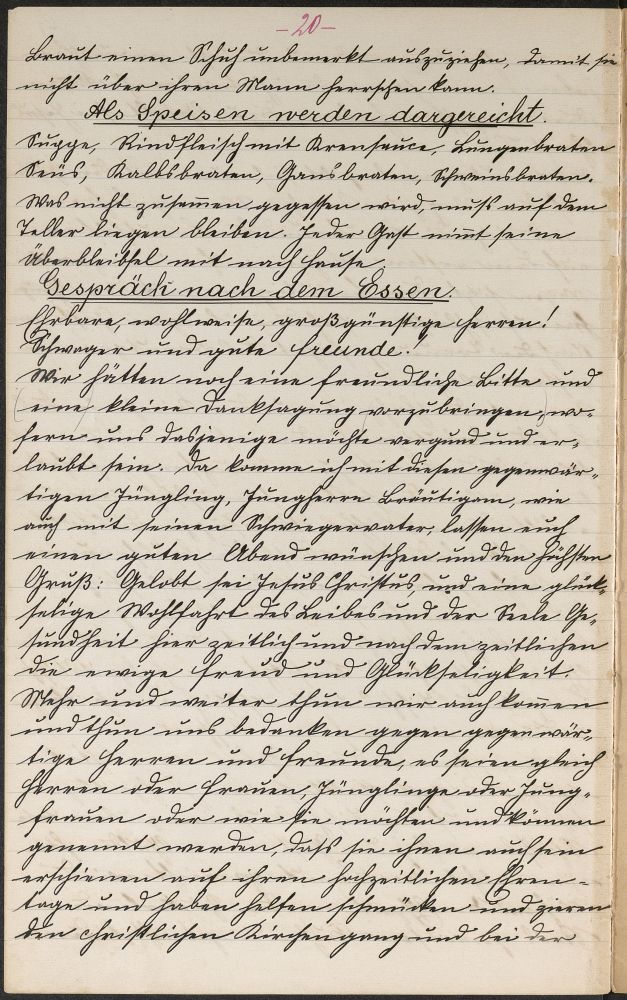 -20-
Braut einen Schuh unbemerkt auszuziehen, damit sie
nicht über ihren Mann herrschen kann.
Als Speisen werden dargereicht.
Suppe, Rindfleisch mit Krensauce, Lungenbraten
Seüs, Kalbsbraten, Gansbraten, Schweinsbraten.
Was nicht zusam̄en gegessen wird, muß auf dem
Teller liegen bleiben. Jeder Gast nim̄t seine
Überbleibsel mit nach Hause.
Gespräch nach dem Essen.
Ehrbare, wohlweise, großgünstige Herren!
Schwager und gute Freunde!
Wir hätten noch eine freundliche Bitte und
(eine) kleine Danksagung vorzubringen, wo-
fern uns dasjenige möchte vergund und er-
laubt sein. Da komme ich mit diesen gegenwär-
tigen Jüngling, Jungherrn Bräutigam, wie
auch mit seinen Schwiegervater, lassen euch
einen guten Abend wünschen und den höchsten
Gruß: Gelobt sei Jesus Christus, und eine glück-
selige Wohlfahrt des Leibes und der Seele Ge-
sundheit hier zeitlich und nach dem zeitlichen
die ewige Freud und Glückseligkeit.
Mehr und weiter thun wir auch kom̄en
und thun uns bedanken gegen gegenwär-
tige Herren und Freunde, es seien gleich
Herren oder Frauen, Jünglinge oder Jung-
frauen oder wie sie möchten und können
genennt werden, daß sie ihnen auch sein
erschienen auf ihren hochzeitlichen Ehren-
tage und haben helfen schmücken und zieren
den christlichen Kirchengang und bei der